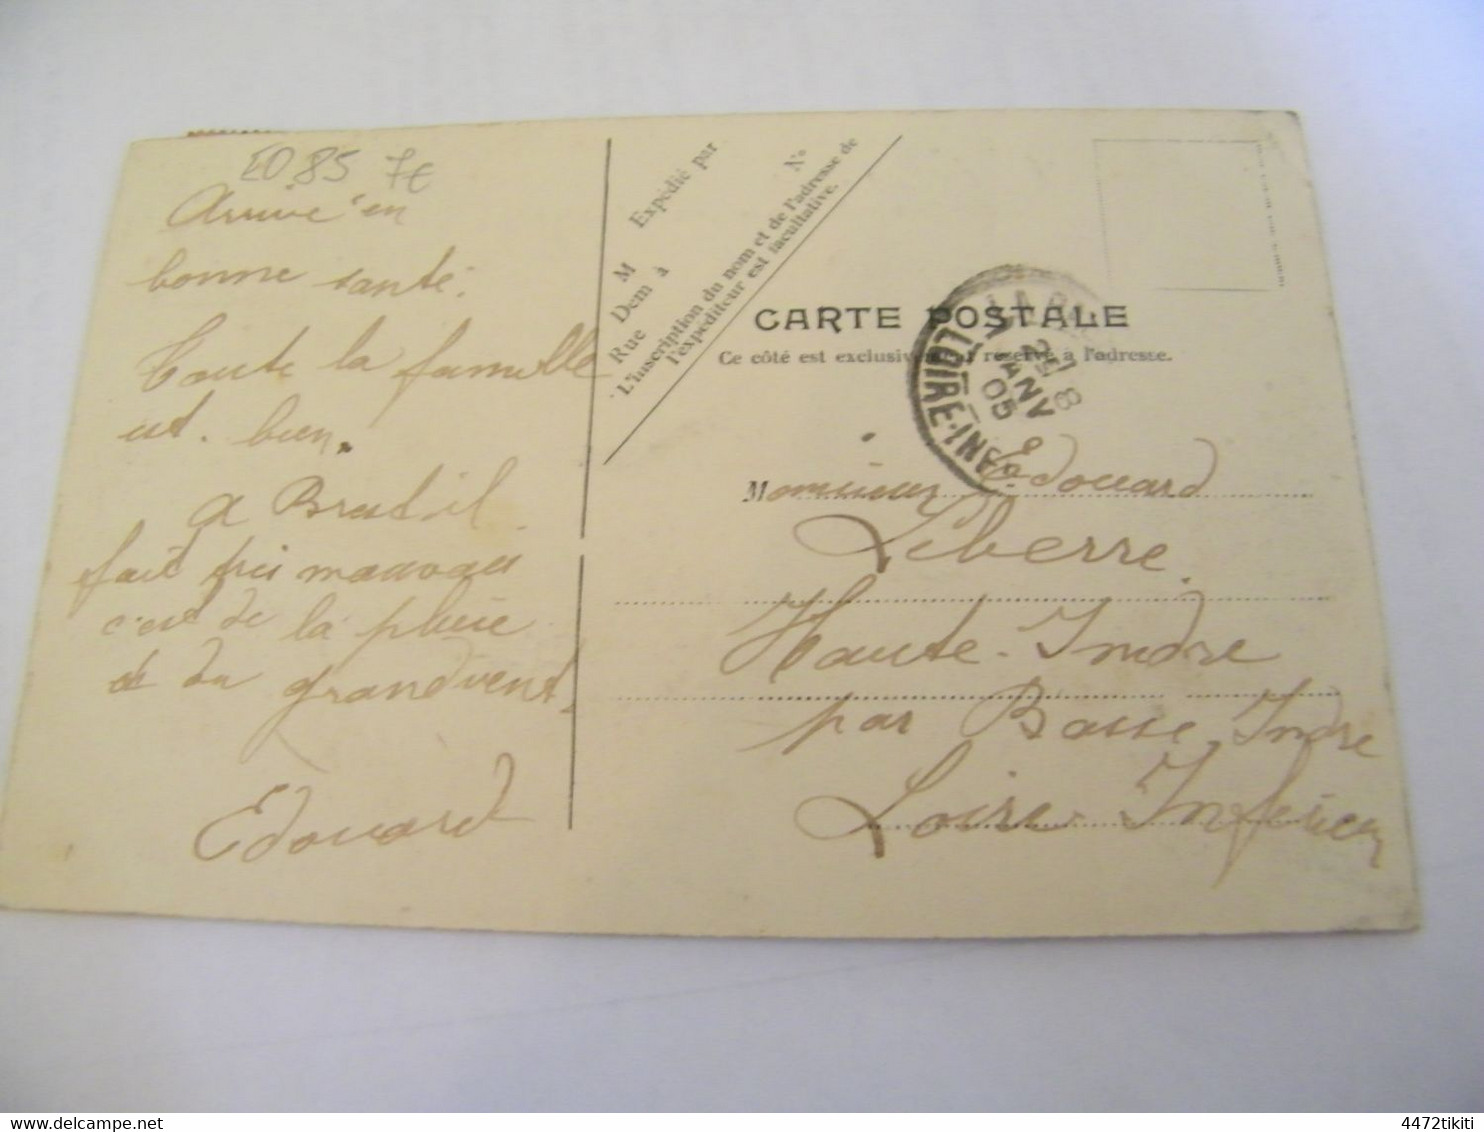 ED 85 7€
Arrivé en
bonne santé.
toute la famille
est. bien.
a Bradil.
fait
c'est de la pluie
de du grand vent.
Edouard
M Expédié par
Dem à
Rue N°
L'inscription du nom et de l'adresse de
l'expéditeur est facultative.
CARTE POSTALE
Ce côté est exclusivement réservé à l'adresse.
LOIRE-INF
8
25
JANV
05
Monsieur Edouard
Leberre.
Haute-Indre
par Basse, Indre
Loire-Inférieur
4472tikiti